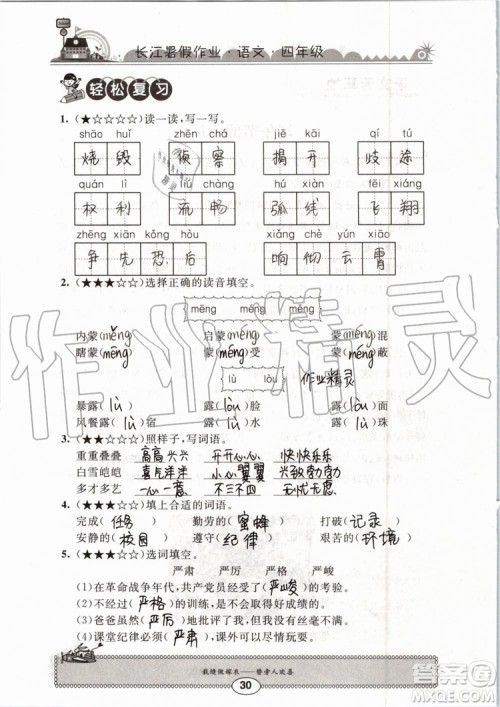 长江暑假作业·语文·四年级
轻松复习
1. (★☆☆☆☆)读一读,写一写。
shāo huǐ zhēn chá jiē kāi qí tú
烧毁 侦察 揭开 歧途
quán lì liú chàng hú xiàn fēi xiáng
权利 流畅 弧线 飞翔
zhēng xiān kǒng hòu xiǎng chè yún xiāo
争先恐后 响彻云霄
2. (★★★☆☆)选择正确的读音填空。
mēng méng měng
内蒙(měng) 启蒙(méng) 蒙(méng)混
瞎蒙(mēng) 蒙(méng)受 蒙(méng)蔽
lù lòu
作业精灵
暴露(lù) 露(lòu)脸 露(lòu)面
风餐露(lù)宿 露(lù)水 露(lù)珠
3. (★★★☆☆)照样子,写词语。
重重叠叠 高高兴兴 开开心心 快快乐乐
白雪皑皑 喜气洋洋 小心翼翼 兴致勃勃
多才多艺 一心一意 不三不四 无忧无虑
4. (★★★☆☆)填上合适的词语。
完成(任务) 勤劳的(蜜蜂) 打破(记录)
安静的(校园) 遵守(纪律) 艰苦的(环境)
5. (★★★☆☆)选词填空。
严肃 严厉 严格 严峻
(1)在革命战争年代,共产党员经受了(严峻)的考验。
(2)不经过(严格)的训练,是不会取得好成绩的。
(3)爸爸刚才(严厉)地批评了我,但我丝毫不感到委屈。
(4)课堂纪律必须(严肃),课外可以尽情玩耍。
30